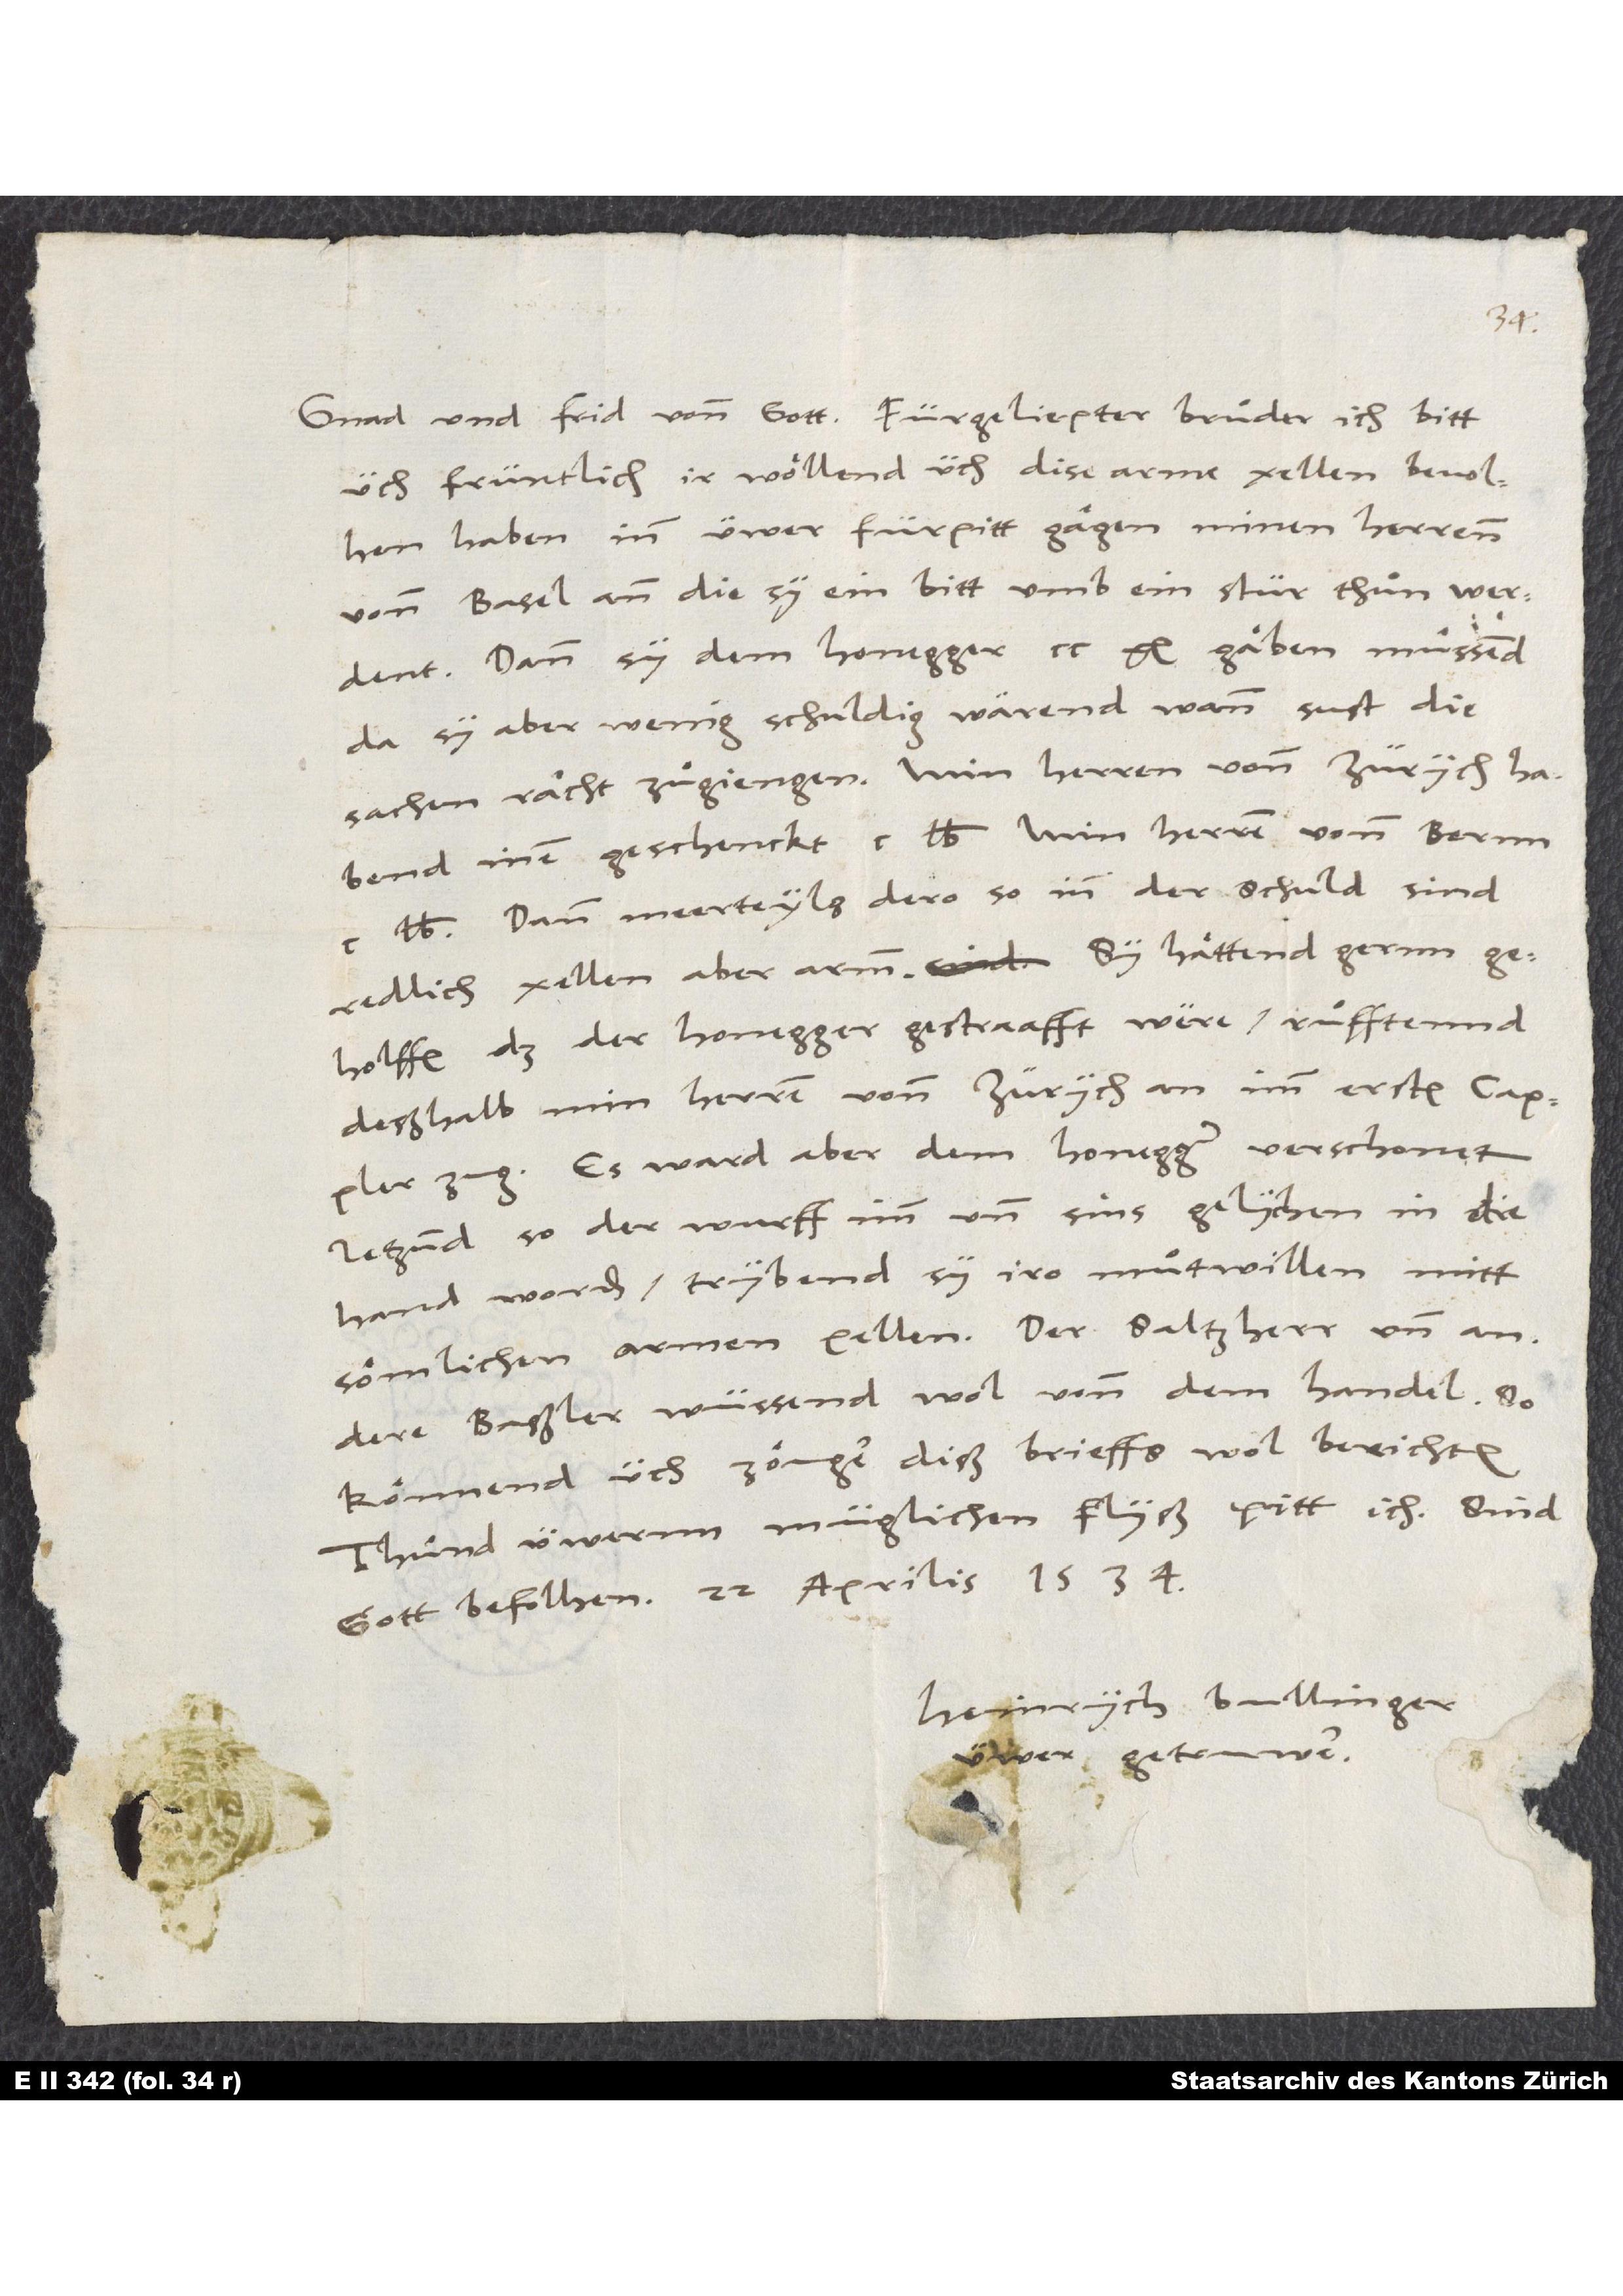 34.
Gnad und frid vonn Gott. Fürgeliepter brůder ich bitt
üch früntlich ir wöllend üch dise arme xellen bevol-
hen haben inn üwer fürpitt gägen minen herrenn
vonn Basel ann die sy ein bitt umb ein stür thůn wer-
dent. Dann sy dem honegger cc gäben müssend
da sy aber wenig schuldig wärend wann sust die
sachen rächt zůgiengen. Min herren vonn Zürych ha-
bend inen geschenckt c lb Min herren vonn Bernn
c lb. Dann meerteyls dero so inn der Schuld sind
redlich xellen aber arm. sind Sy hättend gernn ge-
holffen dz der honegger gestraafft wëre / růfftennd
deßhalb min herren vonn Zürych an imm ersten Cap-
pler zug. Es ward aber dem honegger verschonet
Jetzund so der wurff imm unn sins gelychen in die
hand worden / trybend sy iro můtwillen mitt
sömlichen armen xellen. Der Saltzherr unn an-
dere Baßler wüssend wol vonn dem handel. So
könnend üch zöuger diß brieffs wol berichten
Thůnd üwernn müglichen Flyß pitt ich. Sind
Gott befolhen. 22 Aprilis 1534.
heinrych bullinger
üwer getruwer.
E II 342 (fol. 34 r)
Staatsarchiv des Kantons Zürich